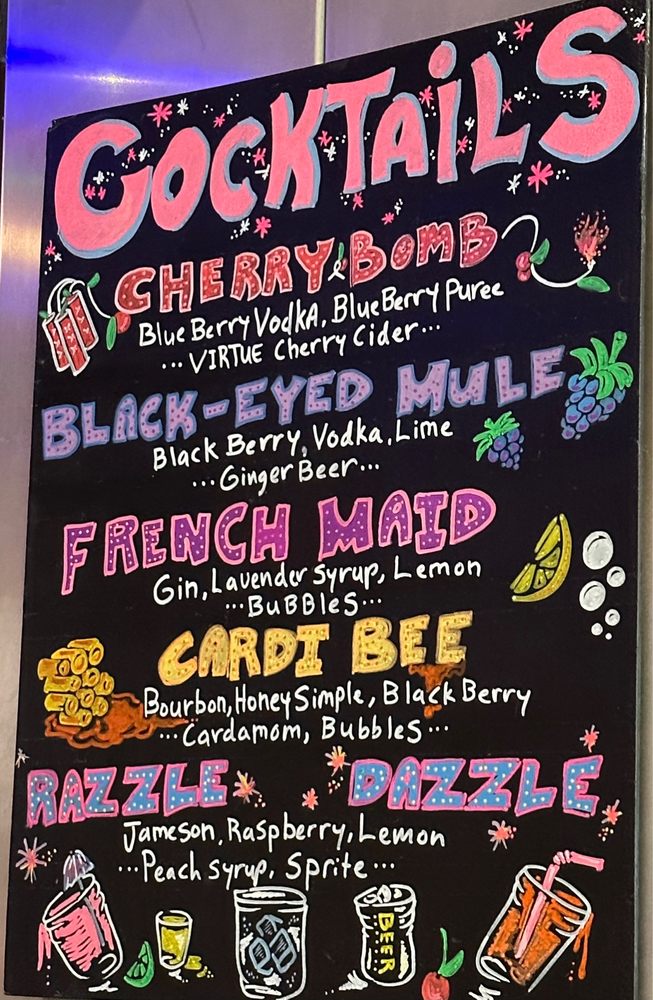 COCKTAiLS
CHERRY BOMB
Blue Berry Vodka, BlueBerry Puree
...VIRTUE Cherry Cider...
BLACK-EYED MULE
Black Berry, Vodka, Lime
...Ginger Beer...
FRENCH MAID
Gin, Lavender Syrup, Lemon
...BuBBles...
CARDI BEE
Bourbon, Honey Simple, Black Berry
...Cardamom, Bubbles...
RAZZLE DAZZLE
Jameson, Raspberry, Lemon
...Peach syrup, Sprite...
BEER